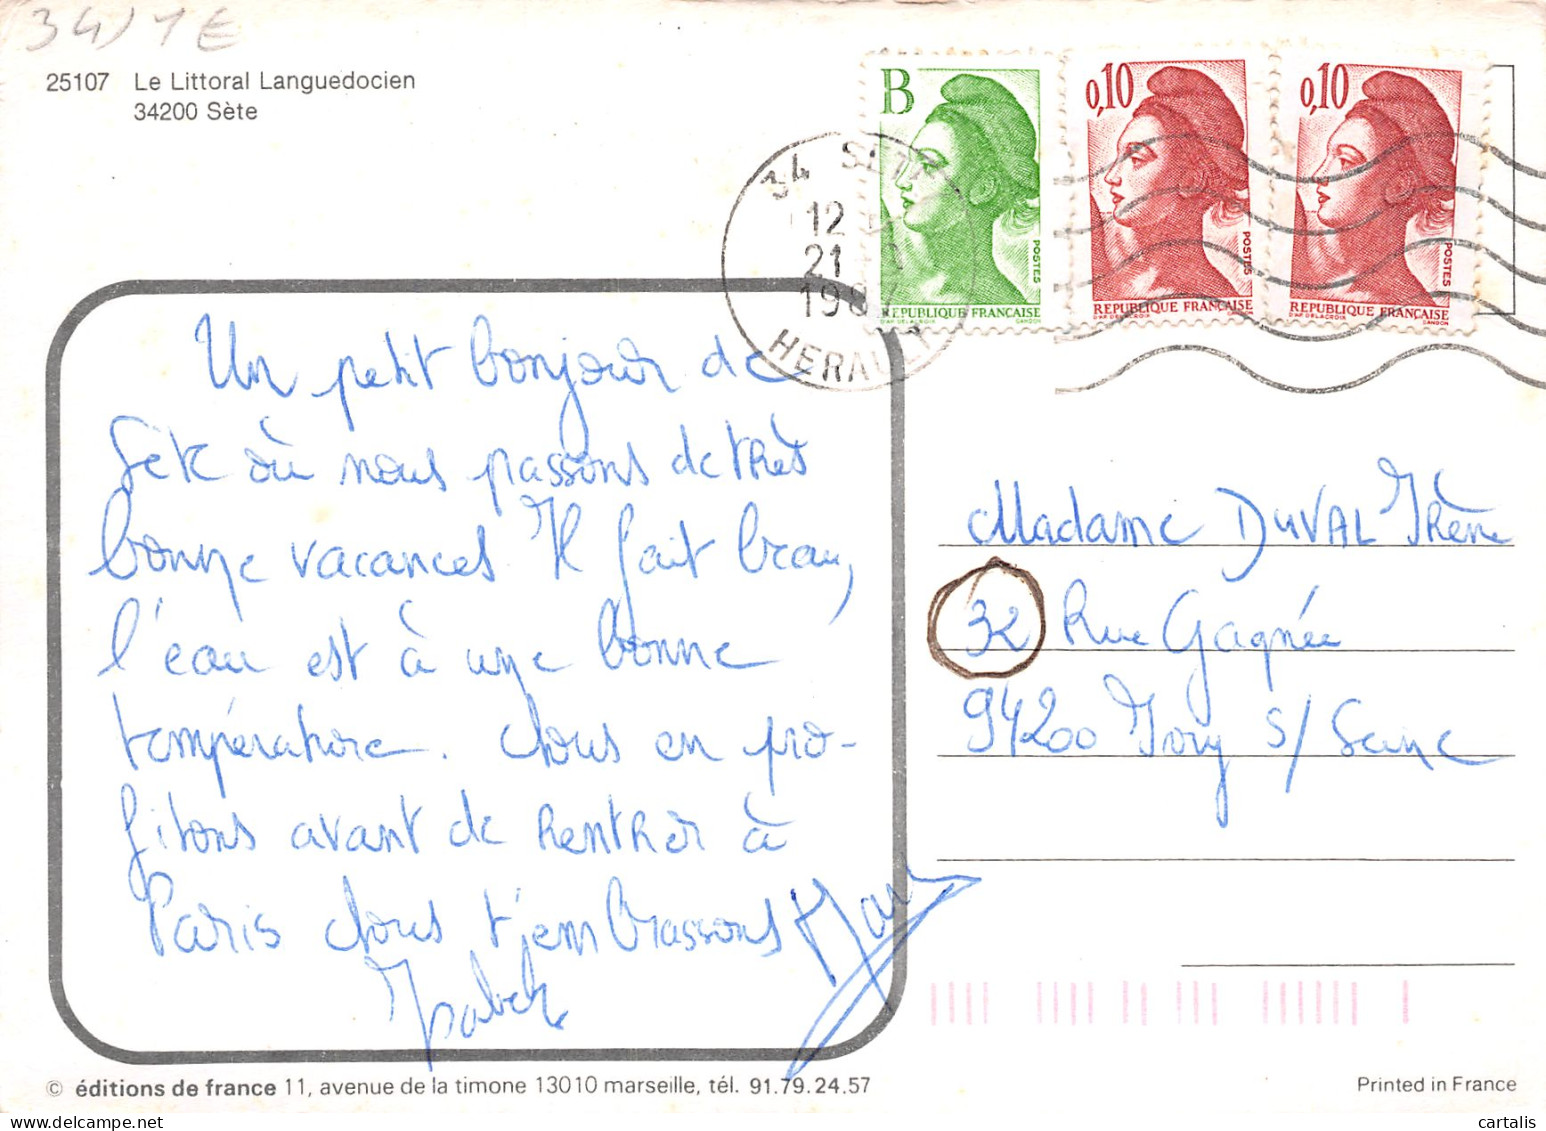 34) 1€
25107 Le Littoral Languedocien
34200 Sète
B
POSTES
REPUBLIQUE FRANÇAISE
D'AP. DELACROIX GANDON
0,10
POSTES
REPUBLIQUE FRANÇAISE
D'AP. DELACROIX GANDON
0,10
POSTES
REPUBLIQUE FRANÇAISE
D'AP. DELACROIX GANDON
34 SETE
12 H
21
1987
HERAULT
Un petit bonjour de
Sète où nous passons de très
bonne vacances. Il fait beau,
l'eau est à une bonne
température. Nous en pro-
fitons avant de rentrer à
Paris Nous t'embrassons
Madame DUVAL Irène
32 Rue Gagnée
94200 Ivry s/ Seine
© éditions de france 11, avenue de la timone 13010 marseille, tél. 91.79.24.57
Printed in France
cartalis